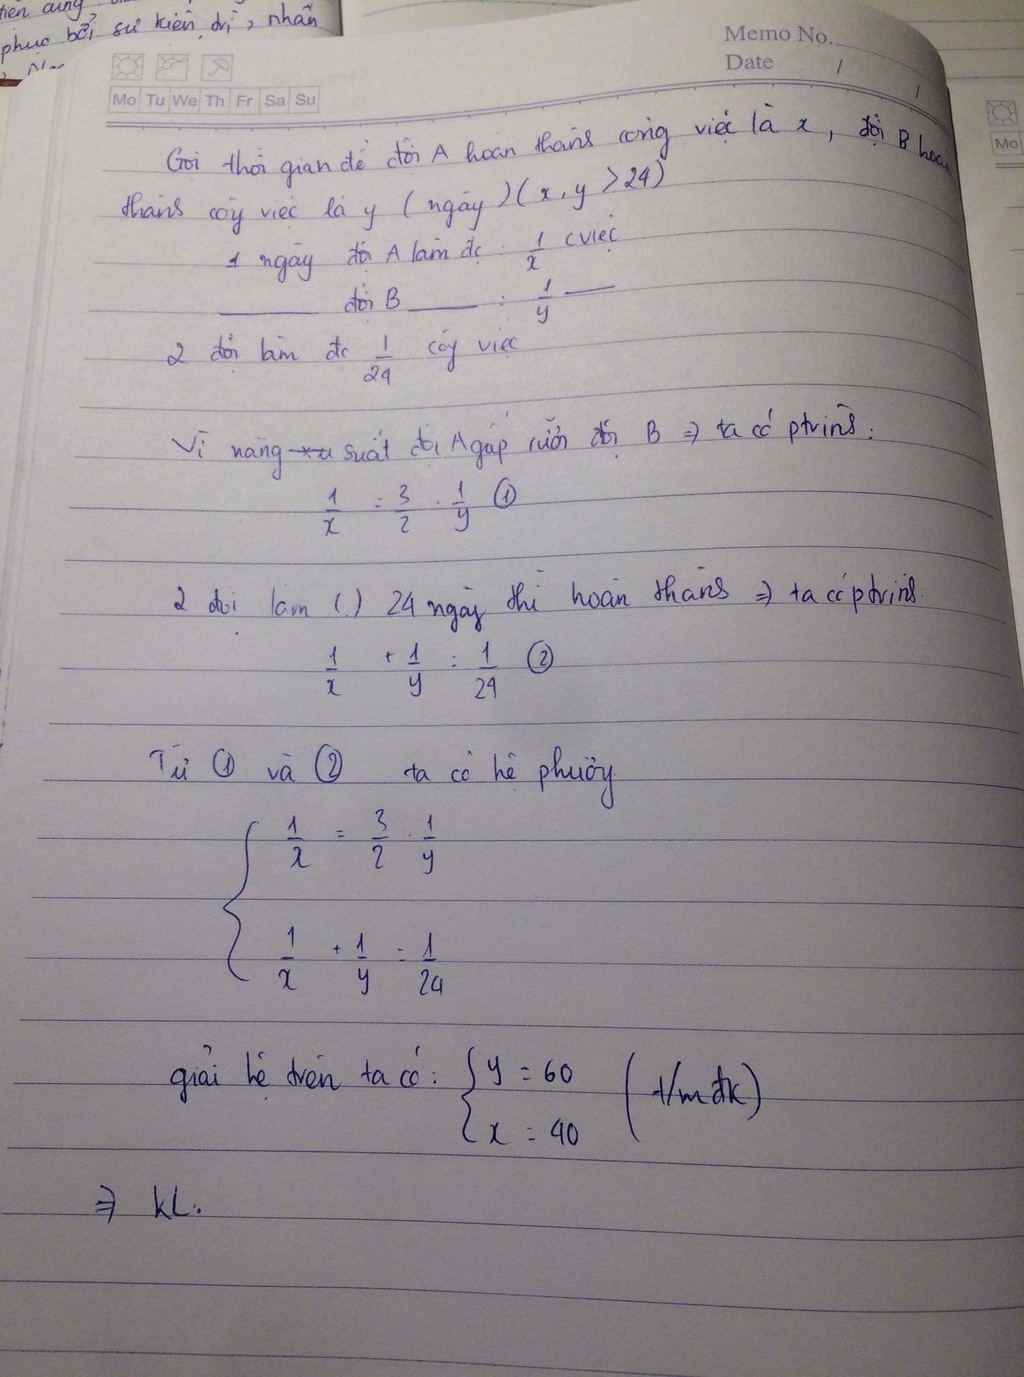 phục bởi sự kiện, dị, nhân
Memo No.
Date / /
Mo Tu We Th Fr Sa Su
Mo
Gọi thời gian để đội A hoàn thành công việc là x, đội B hoàn
thành côg việc là y (ngày) (x, y > 24)
1 ngày đội A làm đc : 1/x cviệc
____ đội B ____ : 1/y ___
2 đội làm đc 1/24 côg việc
Vì năng suất đội A gấp rưỡi đội B ⇒ ta có ptrình:
1/x = 3/2 . 1/y ①
2 đội làm (.) 24 ngày thì hoàn thành ⇒ ta có ptrình:
1/x + 1/y = 1/24 ②
Từ ① và ② ta có hệ phươg
{ 1/x = 3/2 . 1/y
1/x + 1/y = 1/24
giải hệ trên ta có: { y = 60 (t/m đk)
x = 40
⇒ KL.